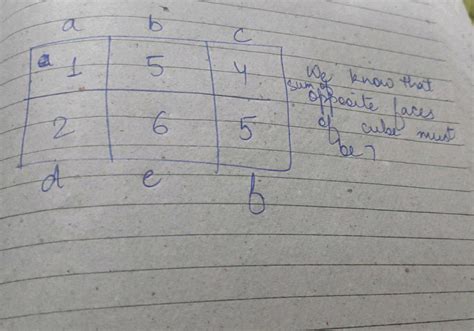 a b c
1 5 4
2 6 5
d e b
We know that
sum of
opposite faces
of cube must
be 7